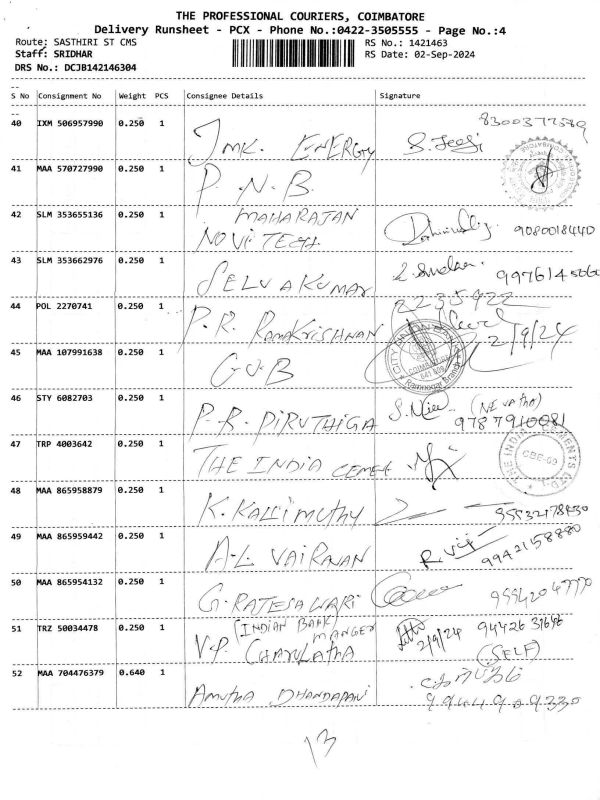 THE PROFESSIONAL COURIERS, COIMBATORE
Delivery Runsheet - PCX - Phone No.:0422-3505555 - Page No.:4
Route: SASTHIRI ST CMS RS No.: 1421463
Staff: SRIDHAR RS Date: 02-Sep-2024
DRS No.: DCJB142146304
S No Consignment No Weight PCS Consignee Details Signature
40 IXM 506957990 0.250 1 JMK. ENERGY
41 MAA 570727990 0.250 1 P.N.B.
42 SLM 353655136 0.250 1 MAHARAJAN 9080018440
NOVI TECH.
43 SLM 353662976 0.250 1 SELVAKUMAR
44 POL 2270741 0.250 1 P.R. RAMAKRISHNAN 2235922
2/9/24
45 MAA 107991638 0.250 1
46 STY 6082703 0.250 1 P.R. PIRUTHIGA 9787910081
47 TRP 4003642 0.250 1 THE INDIA CEMET
CBE-09
48 MAA 865958879 0.250 1 K. KALIMUTHY
49 MAA 865959442 0.250 1 A.L VAIRAVAN 9942158880
50 MAA 865954132 0.250 1 G. RAJESAWARI
51 TRZ 50034478 0.250 1 (INDIAN BANK MANGER 2/9/24
V.P. CHARULATHA (SELF)
52 MAA 704476379 0.640 1 AMUTHA DHANDAPANI
9944909330
13